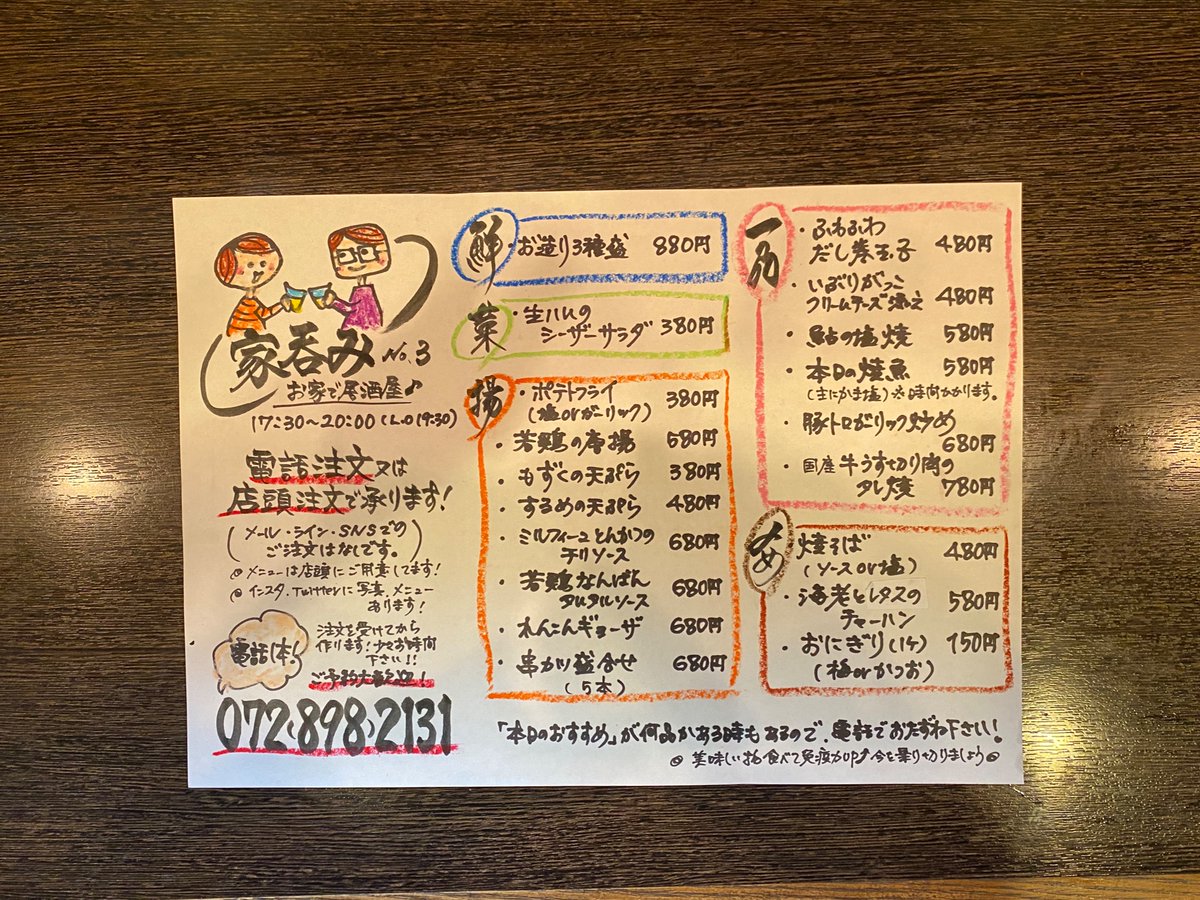 家呑み No.3
お家で居酒屋♪
17:30〜20:00 (L.O 19:30)
電話注文又は
店頭注文で承ります!
(メール・ライン・SNSでの
ご注文はなしです。)
◎メニューは店頭にご用意してます!
◎インスタ、Twitterに写真、メニュー
あります!
電話1本!
注文を受けてから
作ります!少々お時間
下さい!!
ご予約大歓迎!
072-898-2131
鮮
・お造り3種盛 880円
菜
・生ハムの
シーザーサラダ 380円
揚
・ポテトフライ 380円
(塩orガーリック)
・若鶏の唐揚 580円
・もずくの天ぷら 380円
・するめの天ぷら 480円
・ミルフィーユとんかつの
チリソース 680円
・若鶏なんばん
タルタルソース 680円
・れんこんギョーザ 680円
・串カツ盛合せ 680円
(5本)
一品
・ふわふわ
だし巻玉子 480円
・いぶりがっこ
クリームチーズ添え 480円
・鮎の塩焼 580円
・本日の焼魚 580円
(主にかま塩)※時間かかります。
・豚トロガーリック炒め
680円
・国産牛うす切り肉の
タレ焼 780円
〆め
焼そば 480円
(ソースor塩)
・海老とレタスの
チャーハン 580円
・おにぎり(1ケ) 150円
(梅orかつお)
「本日のおすすめ」が何品かある時もあるので、電話でおたずね下さい!
◎美味しい物食べて免疫力UP⤴今を乗り切りましょう◎